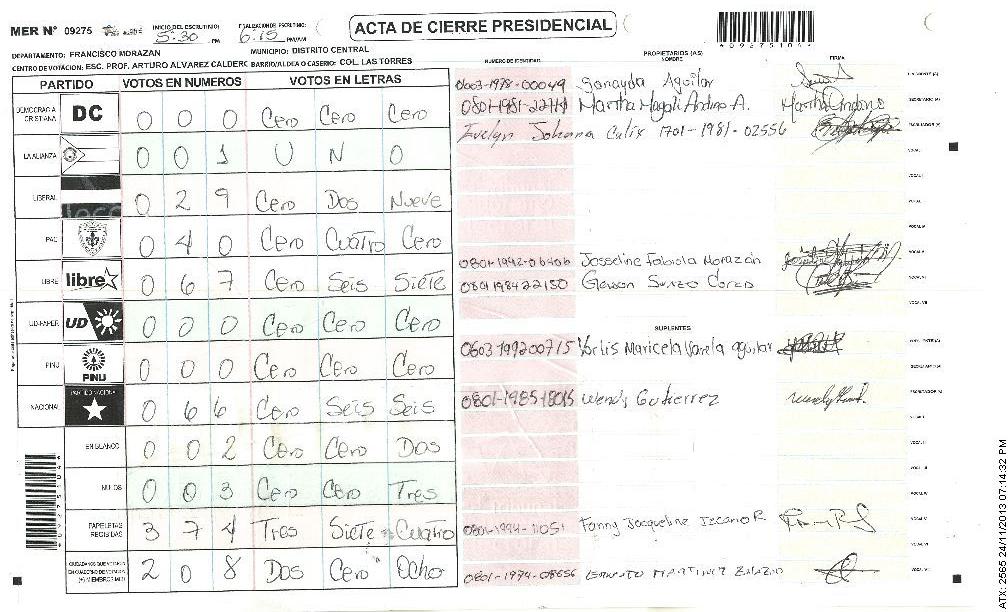 MER Nº 09275 INICIO DEL ESCRUTINIO: 5:30 PM FINALIZACION DEL ESCRUTINIO: 6:15 PM/AM ACTA DE CIERRE PRESIDENCIAL
DEPARTAMENTO: FRANCISCO MORAZAN MUNICIPIO: DISTRITO CENTRAL
CENTRO DE VOTACION: ESC. PROF. ARTURO ALVAREZ CALDERO BARRIO/ALDEA O CASERIO: COL. LAS TORRES
NUMERO DE IDENTIDAD PROPIETARIOS (AS) NOMBRE FIRMA
PARTIDO VOTOS EN NUMEROS VOTOS EN LETRAS
DEMOCRACIA CRISTIANA DC 0 0 0 Cero Cero Cero
LA ALIANZA 0 0 1 U N O
LIBERAL 0 2 9 Cero Dos Nueve
PAC 0 4 0 Cero Cuatro Cero
LIBRE libre 0 6 7 Cero Seis Siete
UD-FAPER UD 0 0 0 Cero Cero Cero
PINU PINU 0 0 0 Cero Cero Cero
NACIONAL PARTIDO NACIONAL 0 6 6 Cero Seis Seis
EN BLANCO 0 0 2 Cero Cero Dos
NULOS 0 0 3 Cero Cero Tres
PAPELETAS RECIBIDAS 3 7 4 Tres Siete Cuatro
CIUDADANOS QUE VOTARON EN CUADERNO DE VOTACION (+) MIEMBROS MER 2 0 8 Dos Cero Ocho
0603-1978-00049 Sonayda Aguilar
Martha Magali Andino A.
Evelyn Johana Culix 1701-1981-02556
0801-1992-06406 Josseline Fabiola Morazán
0801198422150 Gerson
SUPLENTES
0603-199200715 Yorlis Maricela Varela aguilar
0801-1985-18015 Wendy Gutierrez
0801-1994-11051 Fanny Jacqueline R.
0801-1974-08656 ERNESTO MARTINEZ
ATX: 2565 24/11/2013 07:14:32 PM